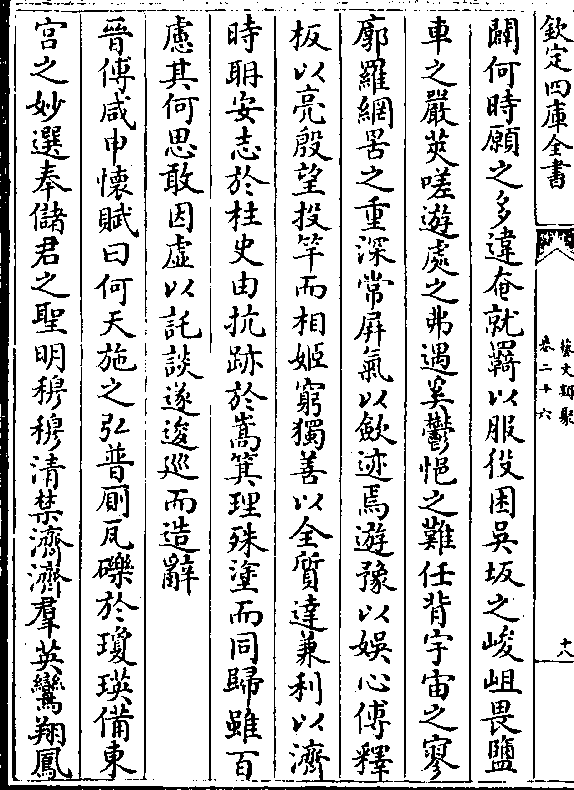 欽定四庫全書
藝文類聚
卷二十六
十八
闕何時願之多違奄就羈以服役困吳坂之峻岨畏鹽
車之嚴筴嗟遊處之弗遇奚鬱悒之難任背宇宙之寥
廓羅網罟之重深常屏氣以斂迹焉遊豫以娛心傅釋
板以亮殷望投竿而相姬窮獨善以全質達兼利以濟
時聃安志於柱史由抗跡於嵩箕理殊塗而同歸雖百
慮其何思敢因虚以託談遂逡巡而造辭
晉傅咸申懷賦曰何天施之弘普厠瓦礫於瓊瑛備東
宫之妙選奉儲君之聖明穆穆清禁濟濟羣英鸞翔鳳